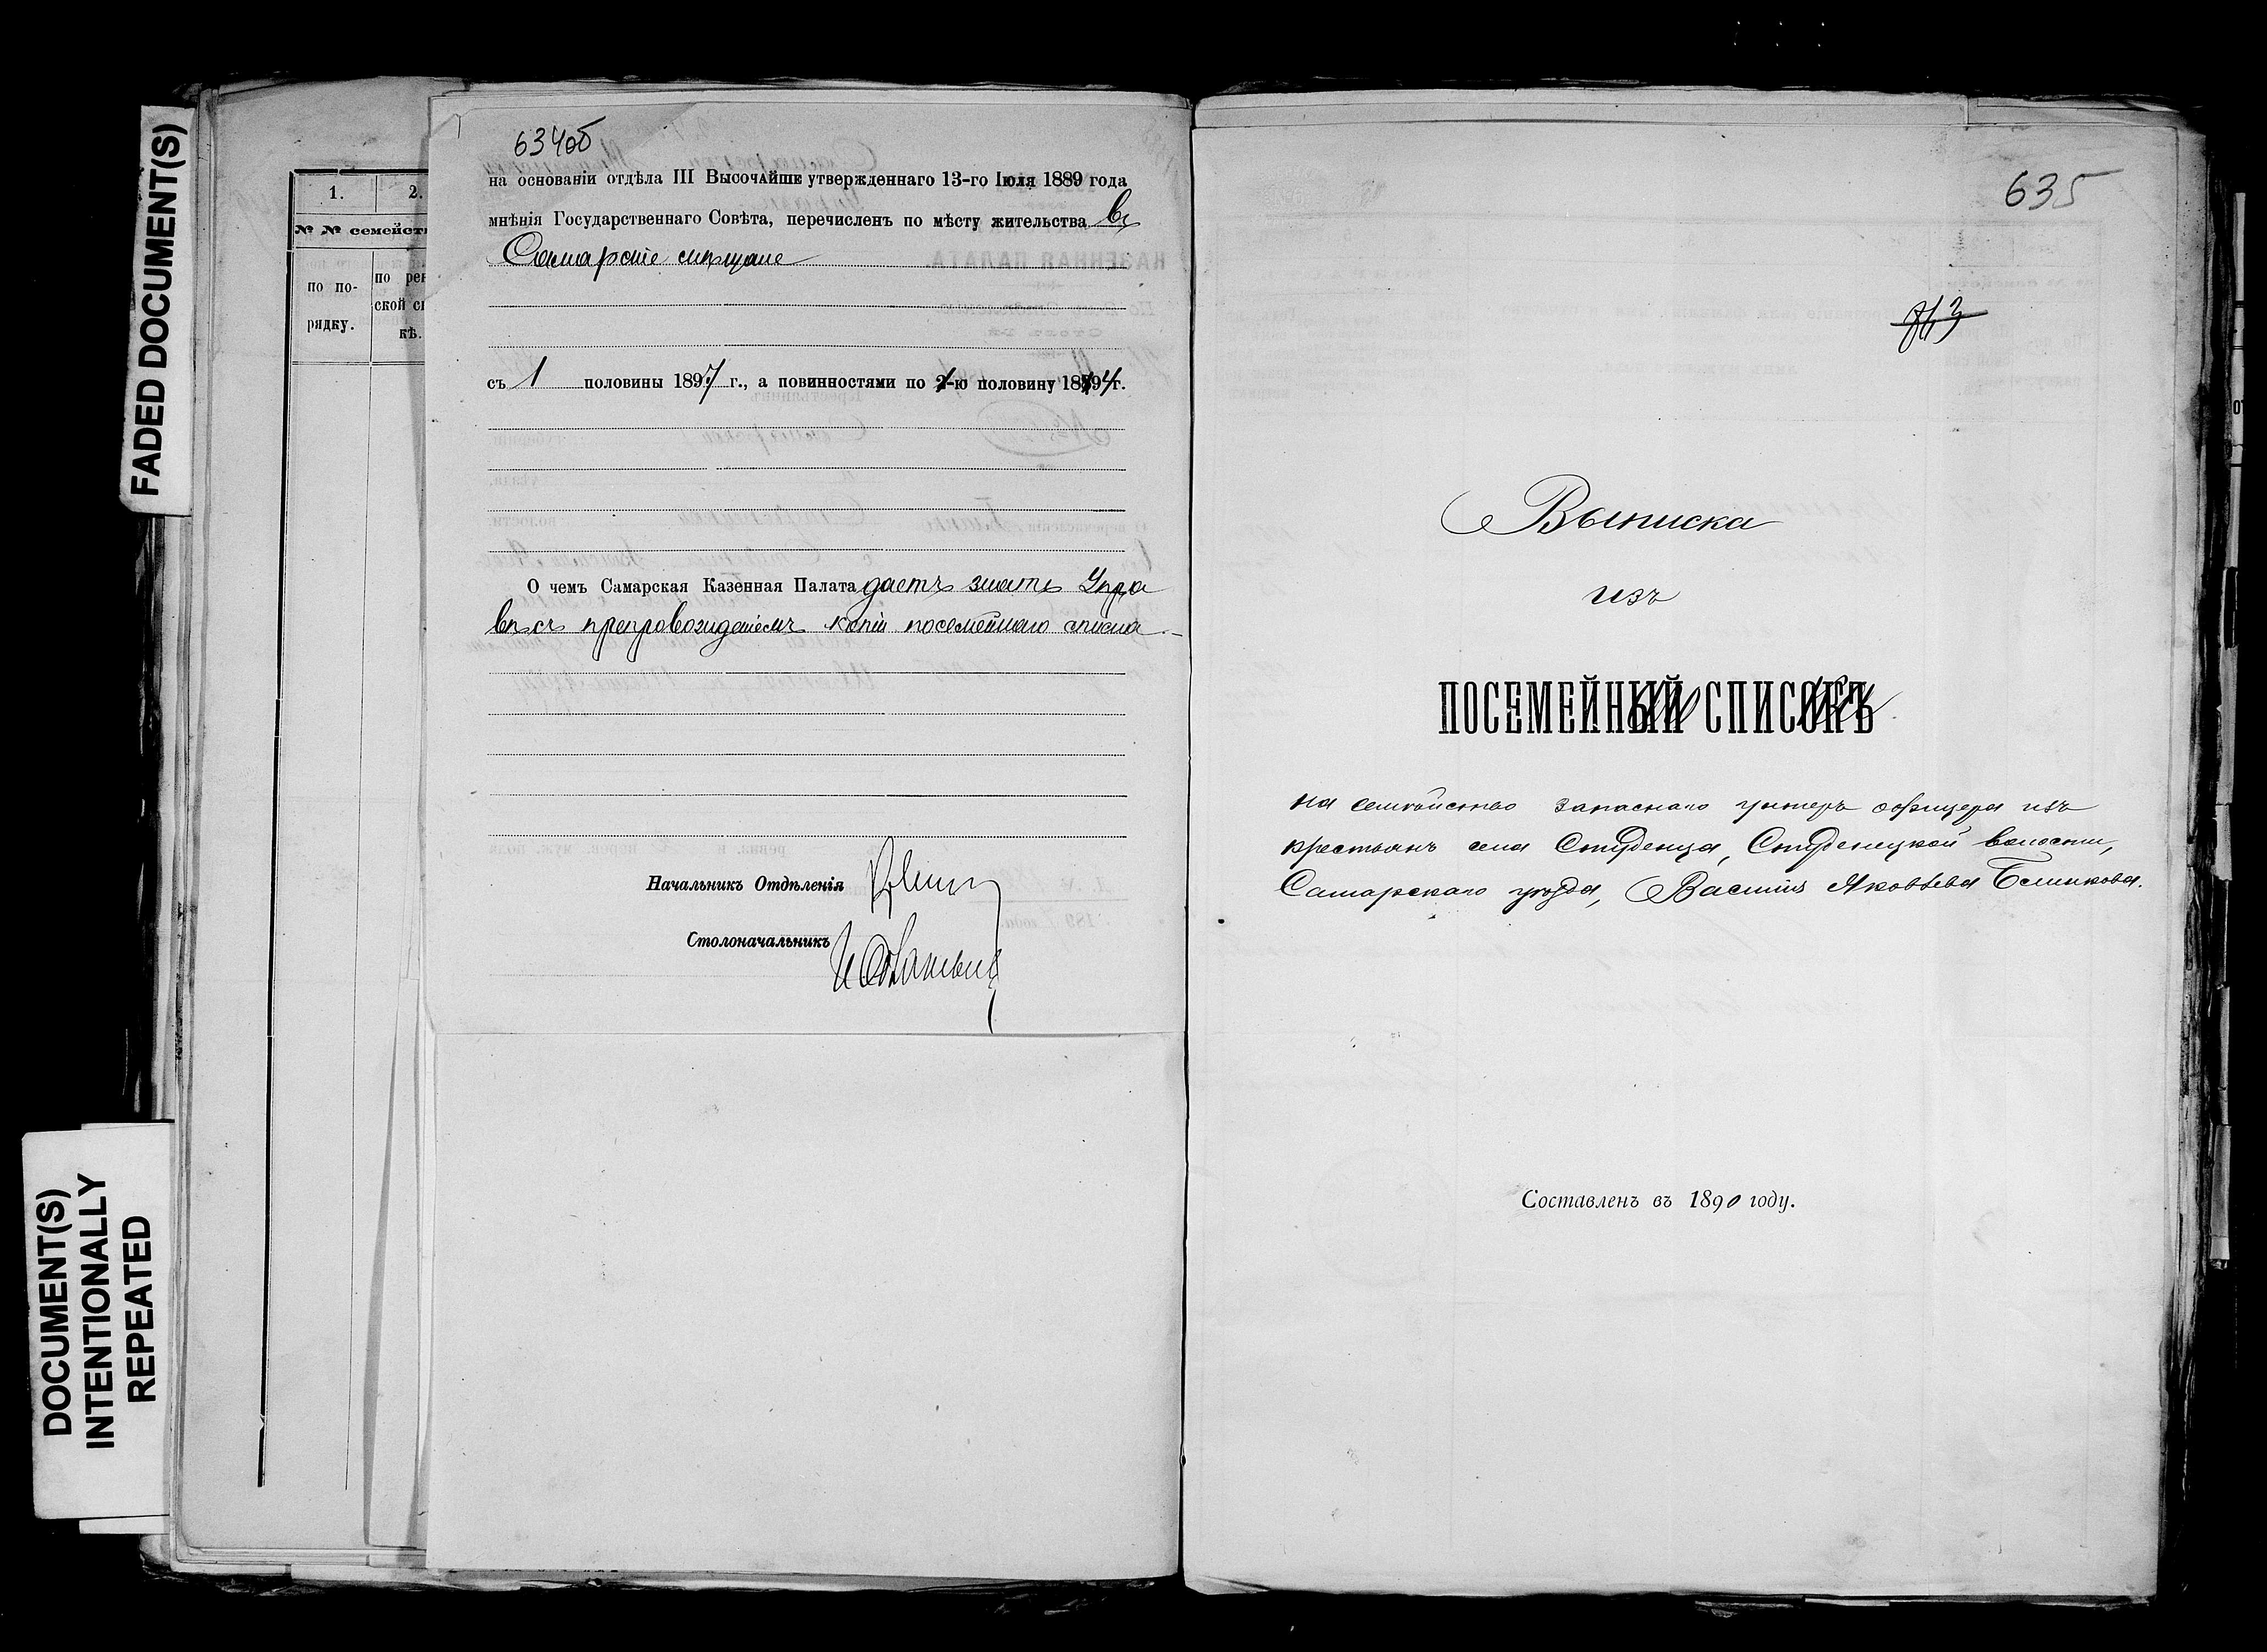 FADED DOCUMENT(S)
DOCUMENT(S)
INTENTIONALLY
REPEATED
1. 2.
№ № семейст
по по-
рядку.
по рев
ской сп
кѣ.
634об
на основаніи отдѣла III Высочайше утвержденнаго 13-го Іюля 1889 года
мнѣнія Государственнаго Совѣта, перечисленъ по мѣсту жительства въ
Самарскіе мѣщане
съ 1 половины 1897 г., а повинностями по ю половину 1894 г.
О чемъ Самарская Казенная Палата даетъ знать Упра
вѣ съ препровожденіемъ копіи посемейнаго списка.
Начальникъ Отдѣленія
Столоначальникъ
635
763
Выписка
изъ
ПОСЕМЕЙНЫЙ СПИСОКЪ
на семейство запаснаго унтеръ офицера изъ
крестьянъ села Студенца, Студенецкой волости,
Самарскаго уѣзда, Василія Яковлева Блинкова.
Составленъ въ 1890 году.